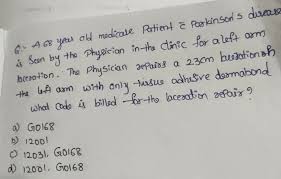 Q:- A 68 year old medicare Patient c̄ Parkinson's disease
is Seen by the Physician in the clinic for a left arm
laceration. The Physician repairs a 2.3cm laceration of
the left arm with only tissue adhesive dermabond
what code is billed for the laceration repair?
a) G0168
b) 12001
c) 12031, G0168
d) 12001, G0168